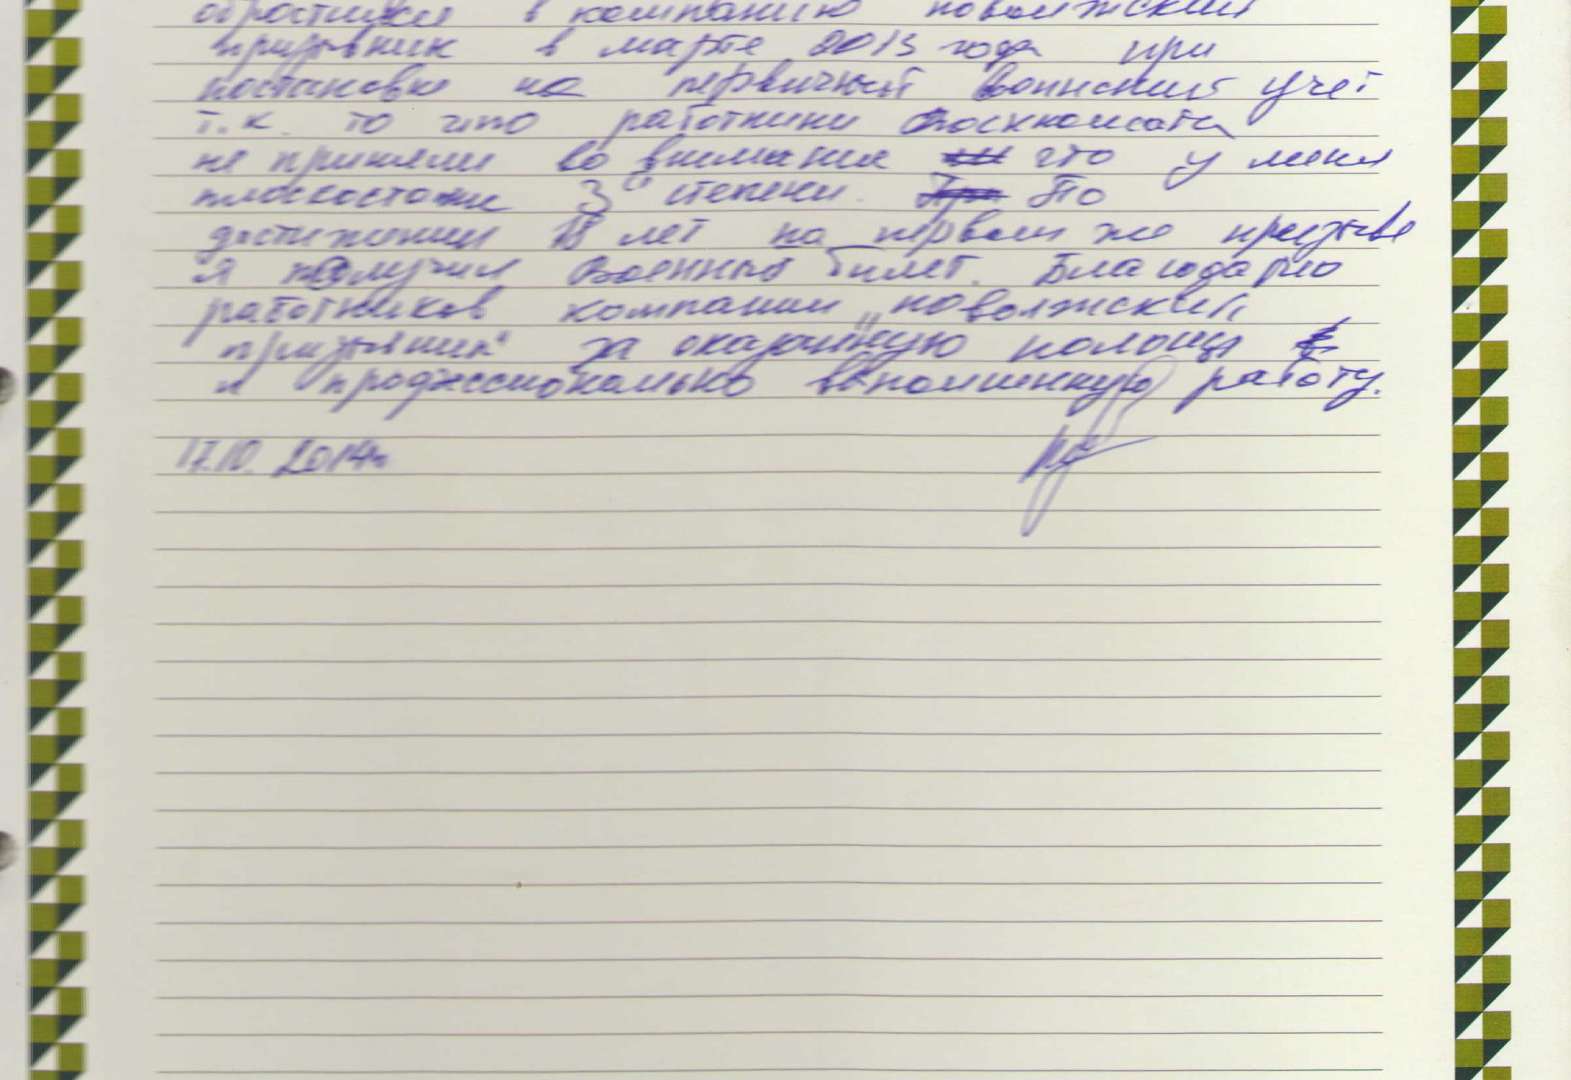 обратился в компанию Поволжский
призывник в марте 2013 года при
постановке на первичный воинский учет
т.к. то что работники военкомата
не приняли во внимание что у меня
плоскостопие 3й степени. По
достижении 18 лет на первом же призыве
я получил военный билет. Благодарю
работников компании „Поволжский
призывник" за оказанную помощь
и профессионально выполненную работу.
17.10.2014г.